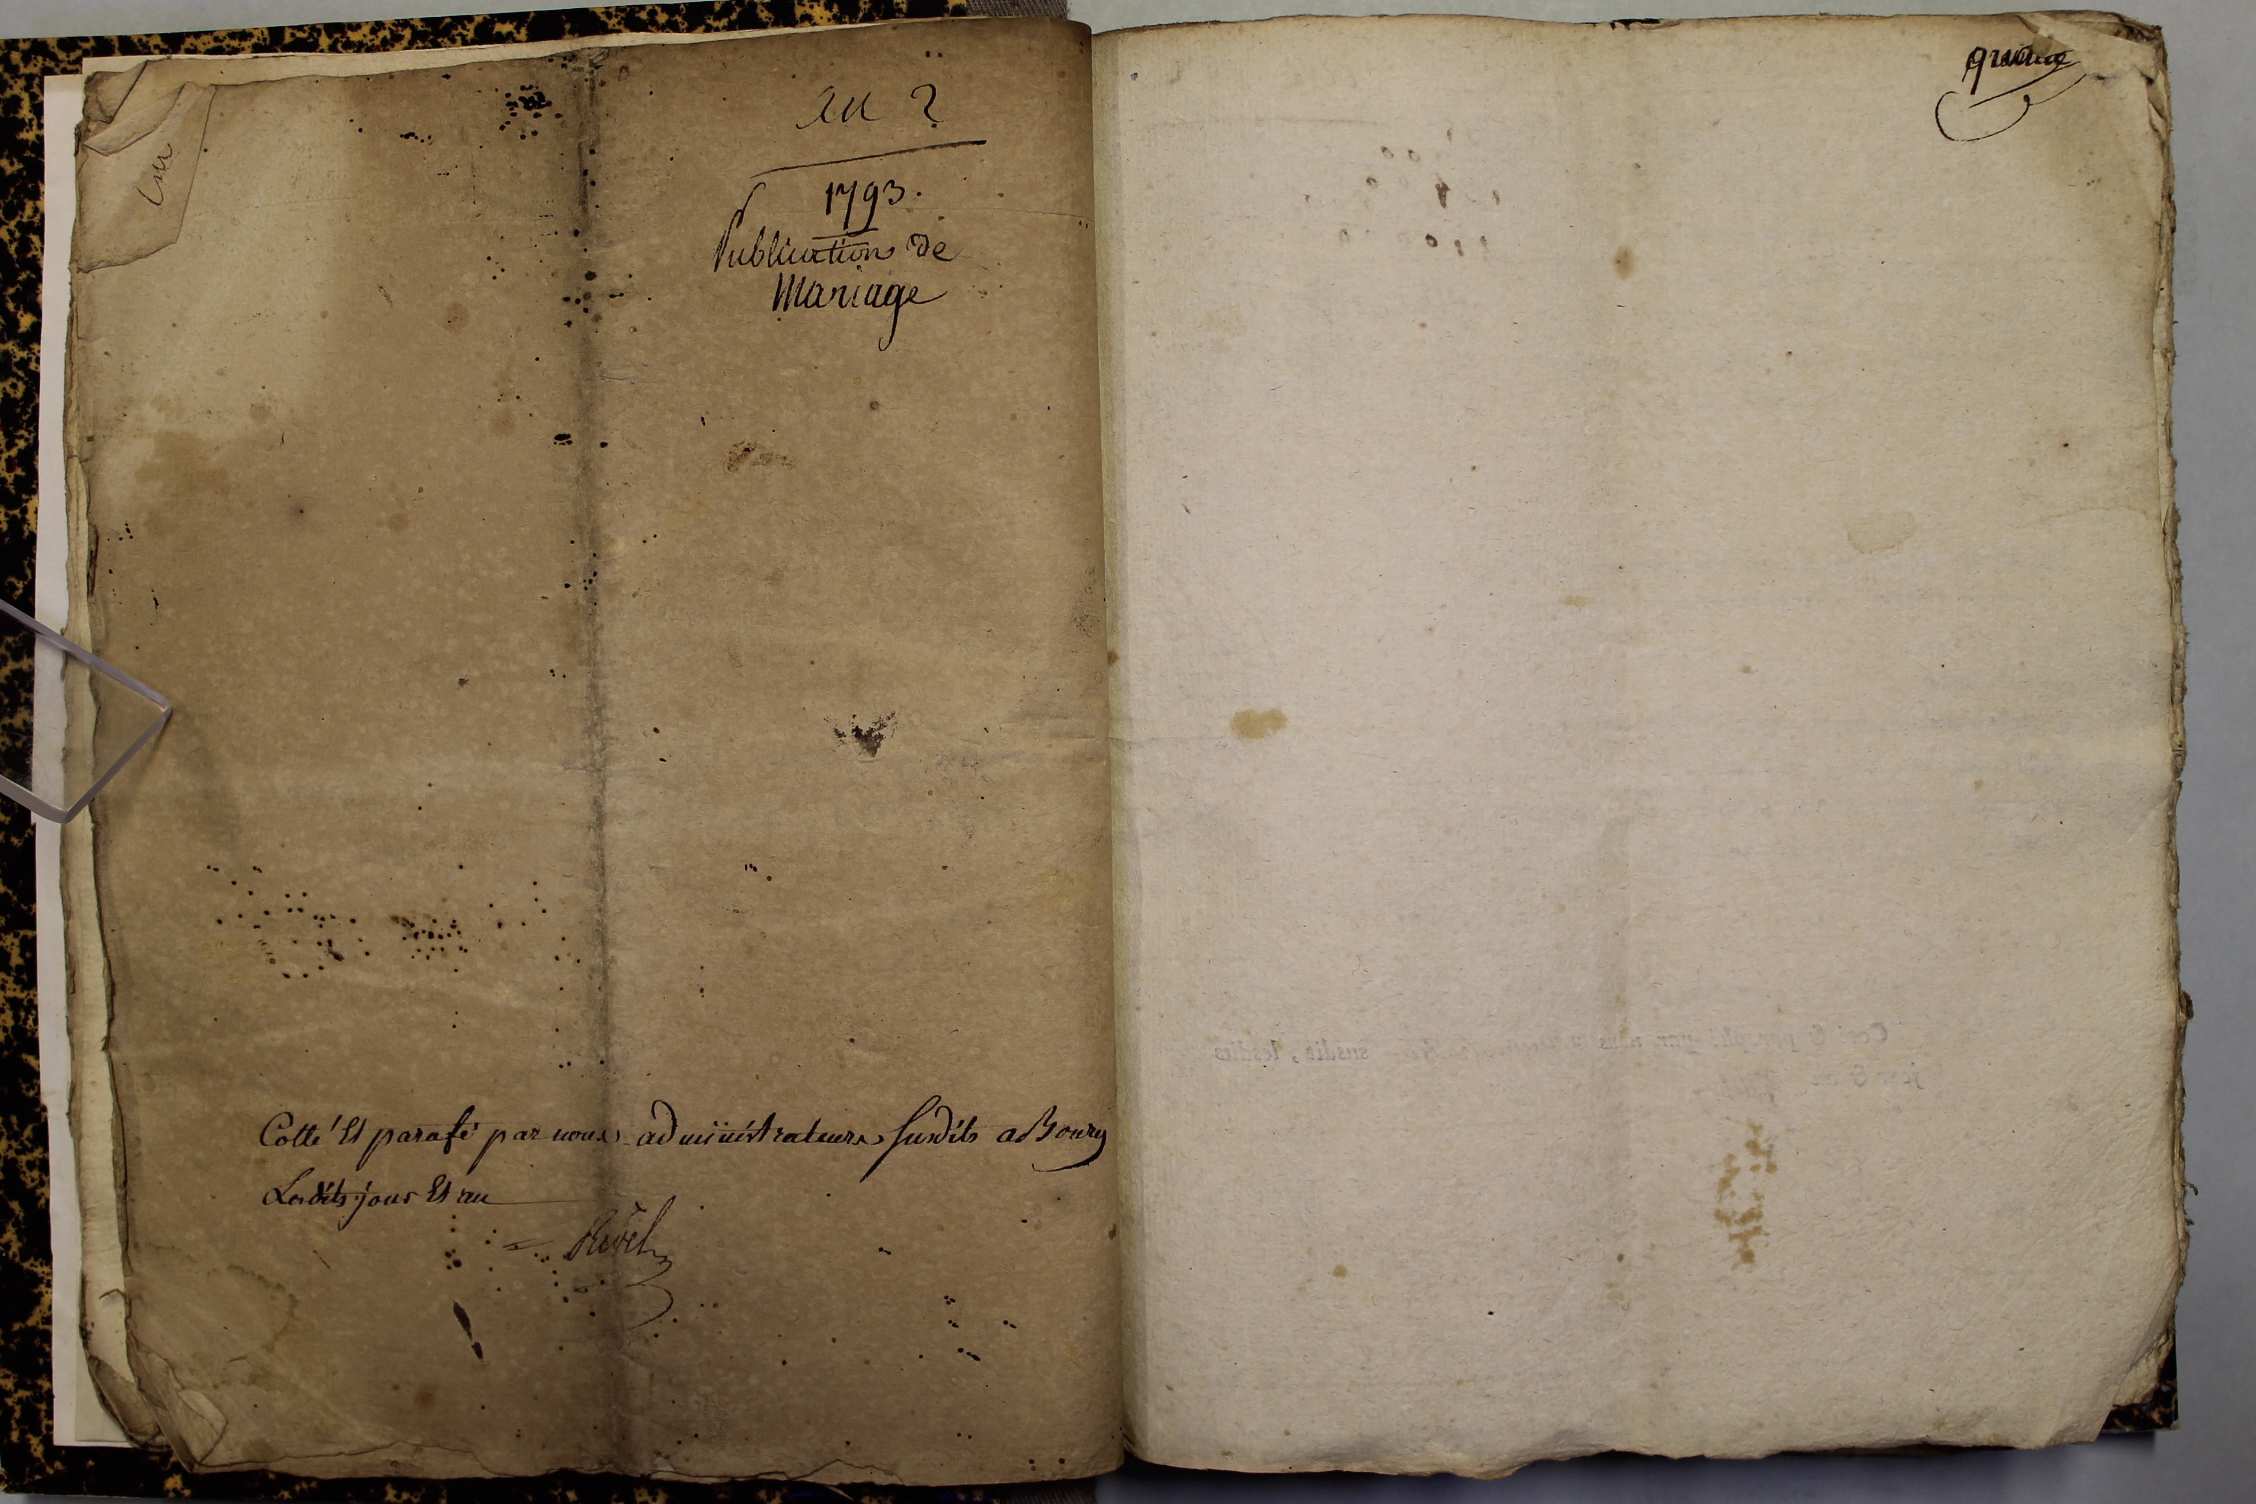 an 2
1793.
Publication de
Mariage
Cotté Et parafé par nous administrateurs susdits a Bourg
Lesdits jour Et an
Revel
quinze
susdit, lesdits